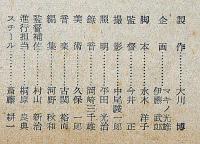 製作 大川博
企画 マキノ光雄
伊藤武郎
脚本 水木洋子
監督 今井正
撮影 中尾駿一郎
照明 平田光治
録音 岡崎三千雄
美術 久保一郎
音楽 古関裕而
編集 河野秋和
監督補佐 村山新治
進行担当 桐原良典
スチール 斎藤耕一